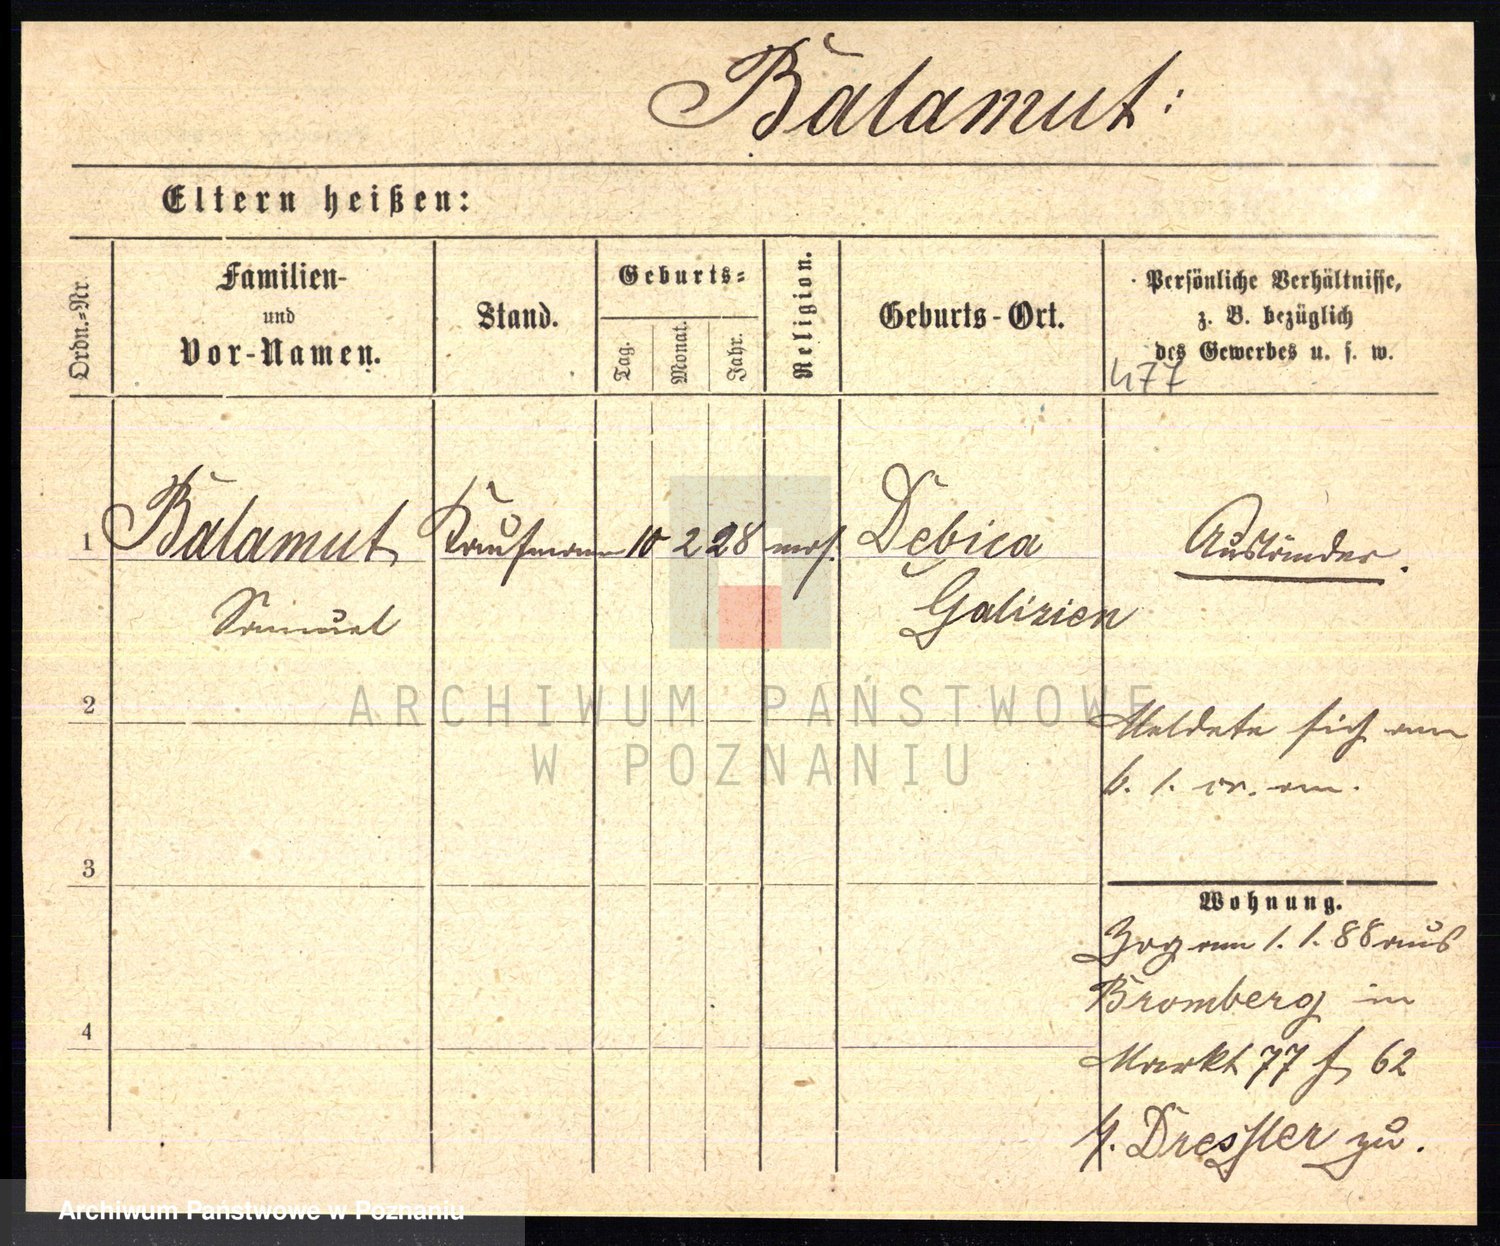 Balamut:
Eltern heißen:
Ordn.-Nr.
Familien-
und
Vor-Namen.
Stand.
Geburts-
Tag.
Monat.
Jahr.
Religion.
Geburts-Ort.
Persönliche Verhältnisse,
z. B. bezüglich
des Gewerbes u. s. w.
477
1 Balamut Kaufmann 10 2 28 mos. Dębica Ausländer.
Samuel Galizien
2
Meldete sich am
6. 1. cr. an.
3
Wohnung.
Zog am 1. 1. 88 aus
Bromberg in
4
Markt 77 f 62
b. Dressler zu.
ARCHIWUM PAŃSTWOWE
W POZNANIU
Archiwum Państwowe w Poznaniu